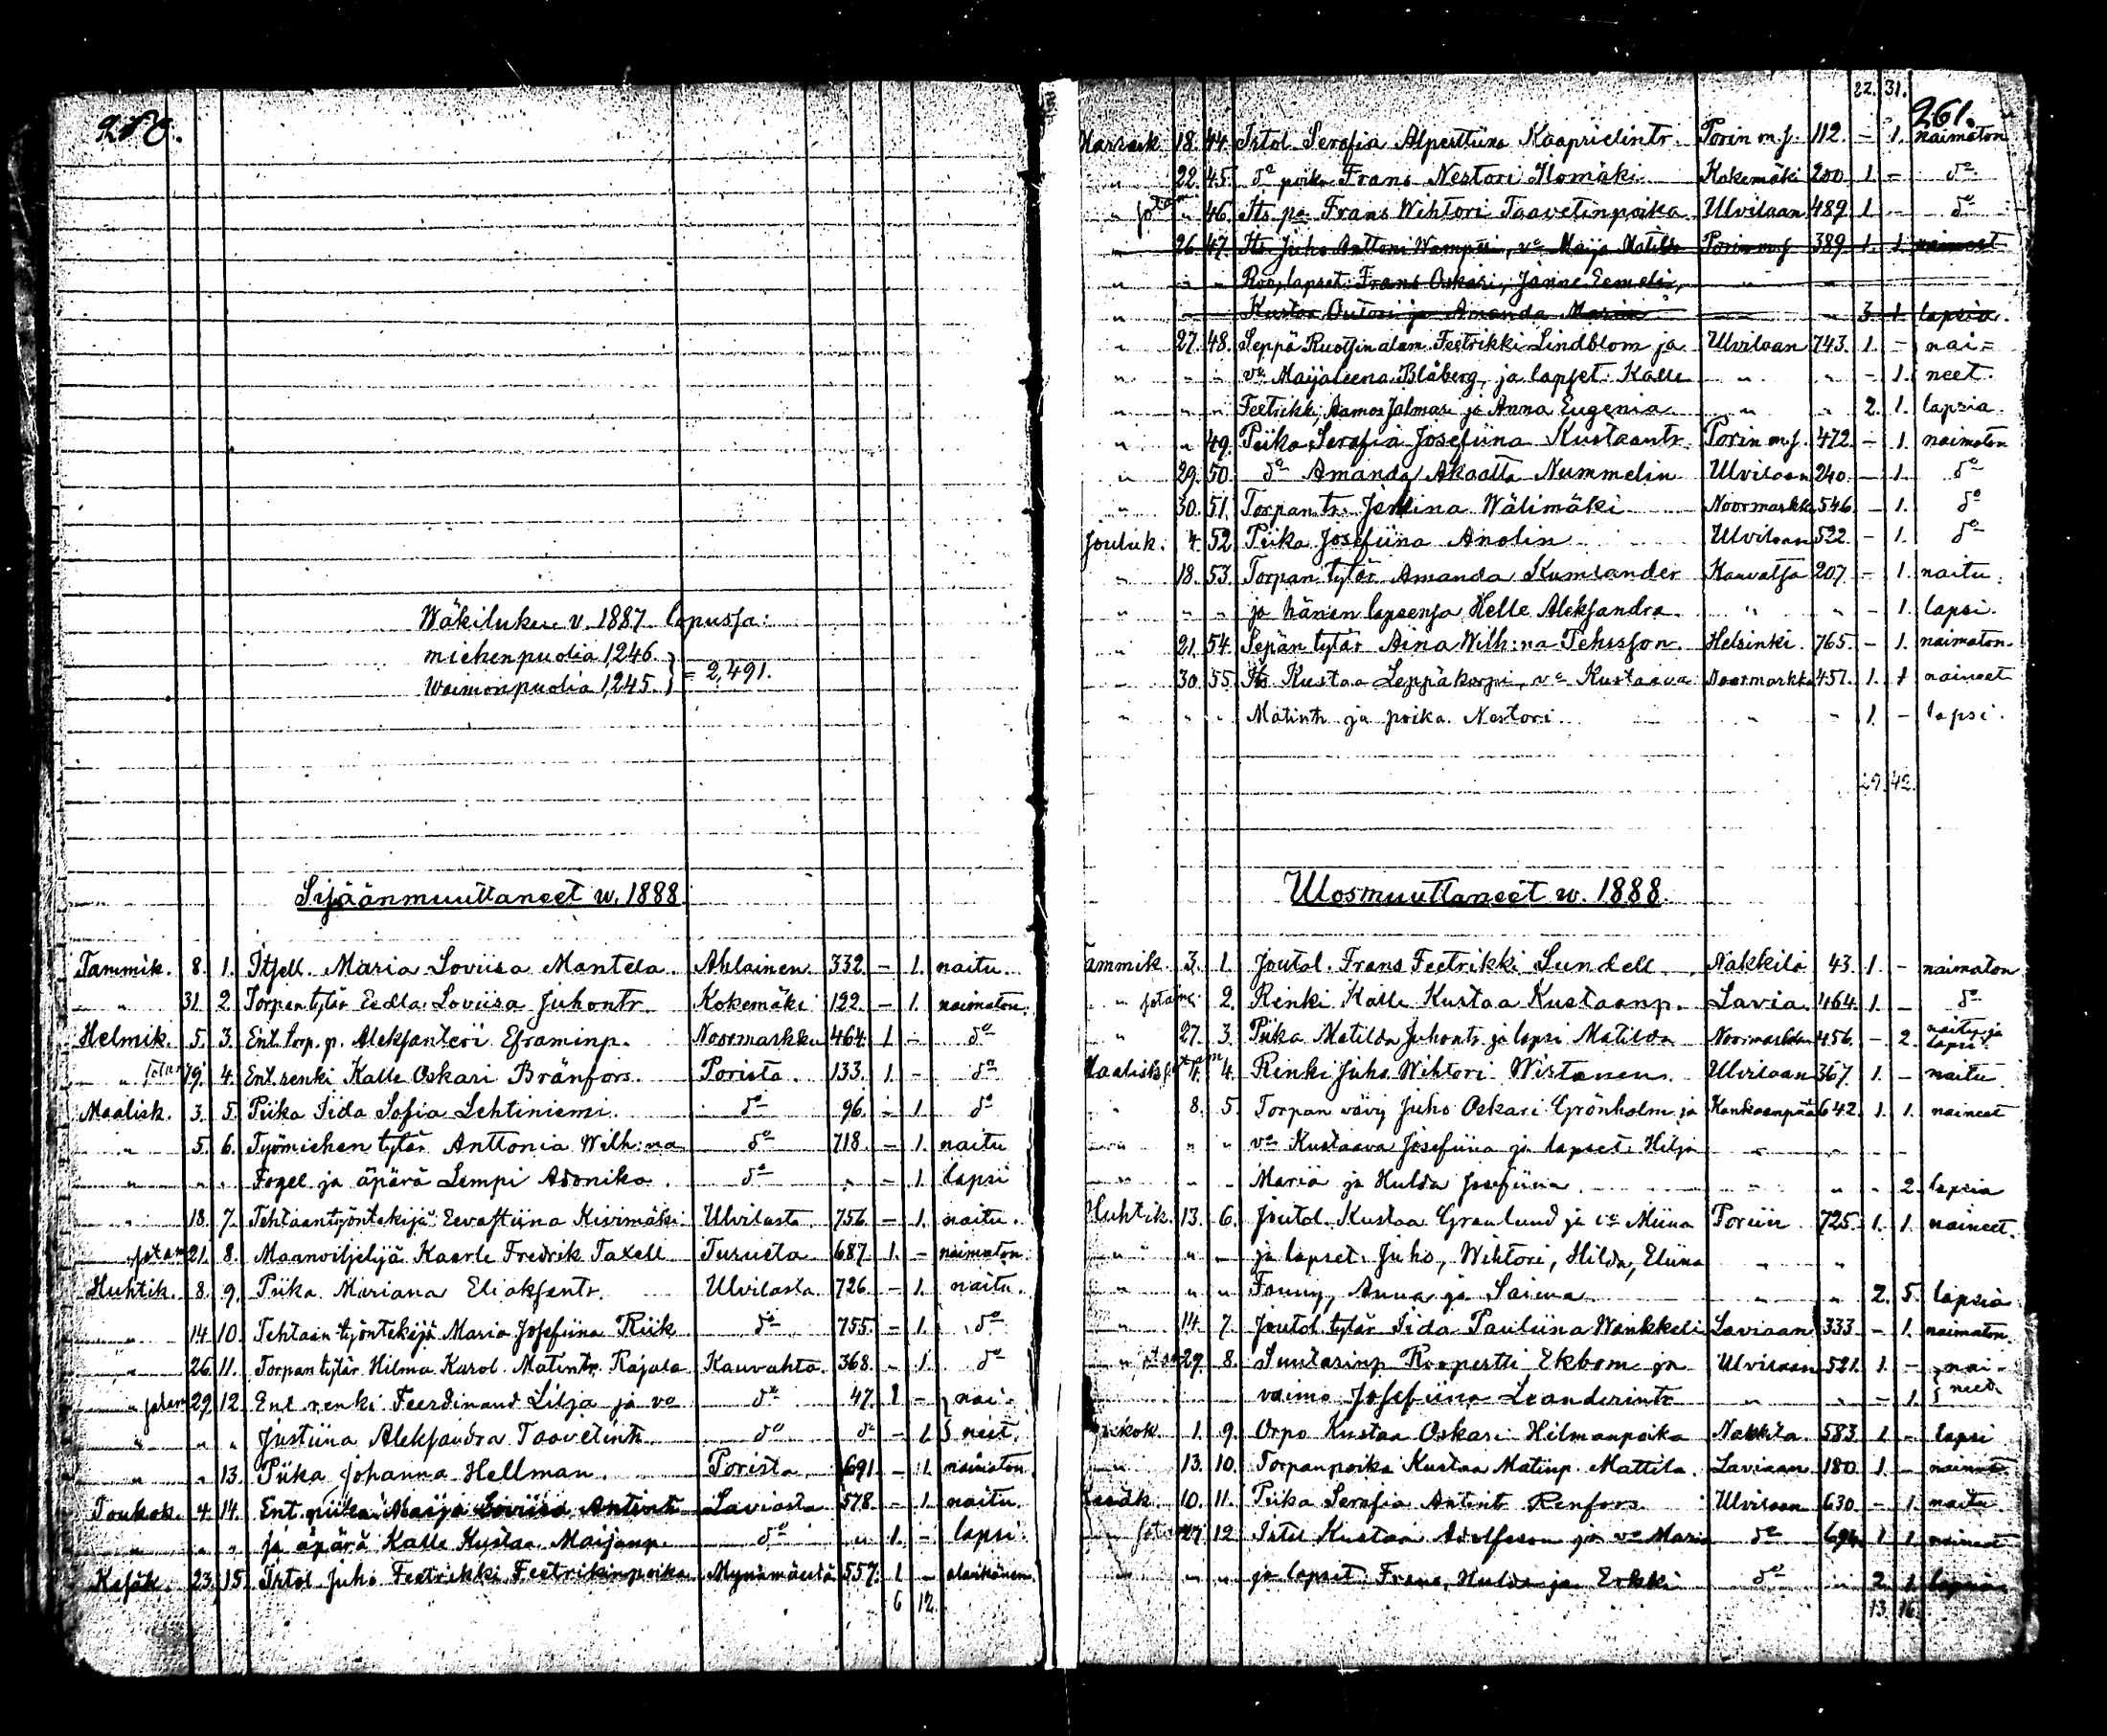 Wäkiluku v. 1887 lopussa:
miehenpuolia 1246.
Waimonpuolia 1,245. } = 2,491.
Sisäänmuuttaneet w. 1888.
Tammik. 8. 1. Itsell. Maria Loviisa Mantela Ahlainen 332 - 1. naitu.
" 31. 2. Torpan tytär Eedla Loviisa Juhontr. Kokemäki 122 - 1. naimaton.
Helmik. 5. 3. Ent. torp. p. Aleksanteri Eframinp. Noormarkku 464. 1 - do
" 19. 4. Ent. renki Kalle Oskari Bränfors. Porista. 133. 1. - do
Maalisk. 3. 5. Piika Iida Sofia Lehtiniemi. do 96. - 1. do
" 5. 6. Työmiehen tytär Anttonia Wilh:na do 718. - 1. naitu
" " " Fogel ja äpärä Lempi Adonika. do " - 1. lapsi
" 18. 7. Tehtaantyöntekijä Eevastiina Kivimäki Ulvilasta. 756. - 1. naitu.
21. 8. Maanviljelijä Kaarle Fredrik Taxell Turusta 687. 1. - naimaton
Huhtik. 8. 9. Piika Mariana Eliaksentr. Ulvilasta. 726. - 1. naitu.
" 14. 10. Tehtaan työntekijä Maria Josefiina Riik do 755. - 1. do
" 26. 11. Torpan tytär Hilma Karol. Matintr. Rajala Kauvahta. 368. - 1. do
" 29. 12. Ent. renki Feerdinand Lilja ja vo do 47. 1 - nai-
" " " Justiina Aleksandra Taavetintr. do do - 1. neet.
" " 13. Piika Johanna Hellman. Porista 691. - 1. naimaton
Toukok. 4. 14. Ent. piika Maija Loviisa Antintr. Laviasta 578. - 1. naitu.
" " " ja äpärä Kalle Kustaa Maijanp. do " 1. - lapsi.
Kesäk. 23. 15. Ihtol. Juho Feetrikki Feetrikinpoika Mynämäestä 557. 1 -
6 12.
22. 31.
261.
Marrask. 18. 44. Ihtol. Serafia Alperttiina Kaaprielintr. Porin m.s. 112. - 1. naimaton
" 22. 45. do poika Frans Nestori Ilomäki Kokemäki 200 1. - do
" " 46. Its. pa Frans Wihtori Taavetinpoika Ulvilaan 489 1. - do
" 26. 47. Its. Juho Anttoni Wamppi, vo Maija Matilda Porin m.s. 389. 1. 1. naineet
" " " lapset: Frans Oskari, Janne Eemeli, " "
" Kustaa Outori ja Amanda Maria " 3. 1. lapsia.
" 27. 48. Seppä Ruotsin alam. Feetrikki Lindblom ja Ulvilaan 743. 1. - nai=
" " " vo Maijaleena Blåberg, ja lapset: Kalle " " - 1. neet.
" " " Feetrikki, Aamos Jalmari ja Anna Eugenia " " 2. 1. lapsia.
" " 49. Piika Serafia Josefiina Kustaantr. Porin m.s. 472. - 1. naimaton
" 29. 50. do Amanda Akaatta Nummelin Ulvilaan 240. - 1. do
" 30. 51. Torpan tr. Wälimäki Noormarkku 546. - 1. do
Jouluk. 4. 52. Piika Josefiina Anolin Ulvilaan 522. - 1. do
" 18. 53. Torpan tytär Amanda Kumlander Kauvatsa 207. - 1. naitu.
" " " ja hänen lapsensa Helle Aleksandra " " - 1. lapsi.
" 21. 54. Sepän tytär Aina Wilh:na Helsinki. 765. - 1. naimaton.
" 30. 55. Its. Kustaa Leppäkorpi, vo Kustaava Noormarkku 457. 1. 1 naineet
" " " Matintr. ja poika Nestori. " " 1. - lapsi.
29. 42.
Ulosmuuttaneet w. 1888.
Tammik. 3. 1. Joutol. Frans Feetrikki Sundell Nakkila 43. 1. - naimaton
" 2. Renki Kalle Kustaa Kustaanp. Lavia. 464. 1. - do
" 27. 3. Piika Matilda Juhontr. ja lapsi Matilda Noormarkku 456. - 2. naitu ja lapsi
Maalisk. 4. 4. Renki Juho Wihtori Wirtanen. Ulvilaan 367. 1. - naitu
" 8. 5. Torpan vävy Juho Oskari Grönholm ja Kankaanpää 642. 1. 1. naineet
" " " vo Kustaava Josefiina ja lapset: Hilja " "
" " " Maria ja Hulda Josefiina. " " - 2. lapsia
Huhtik. 13. 6. Joutol. Kustaa Granlund ja vo Miina Poriin 725. 1. 1. naineet.
" " " ja lapset: Juho, Wihtori, Hilda, Eliina " "
" " " Fanny, Anna ja Saima " " 2. 5. lapsia
" 14. 7. Joutol. tytär Iida Pauliina Wänkkeli Laviaan 333. - 1. naimaton
" 29. 8. Suutarinp. Roopertti Ekbom ja Ulvilaan 521. 1. - nai-
vaimo Josefiina Leanderintr. " " - 1. neet.
Toukok. 1. 9. Orpo Kustaa Oskari Hilmanpoika Nakkila. 583. 1 - lapsi
" 13. 10. Torpanpoika Kustaa Matinp. Mattila. Laviaan 180. 1. -
Kesäk. 10. 11. Piika Serafia Antintr. Renfors Ulvilaan 630. - 1. naitu.
27. 12. Itsel. Kustaa Adolfsson ja vo Maria do 694. 1. 1. naineet
" " " ja lapset: Frans, Hulda ja Erkki do " 2. 1. lapsia
13. 16.